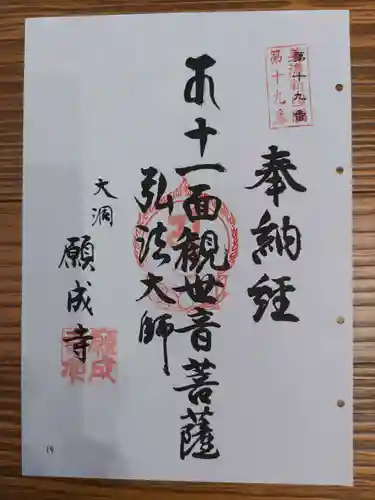 第十九番
奉納経
十一面観世音菩薩
弘法大師
大洞
願成寺
19